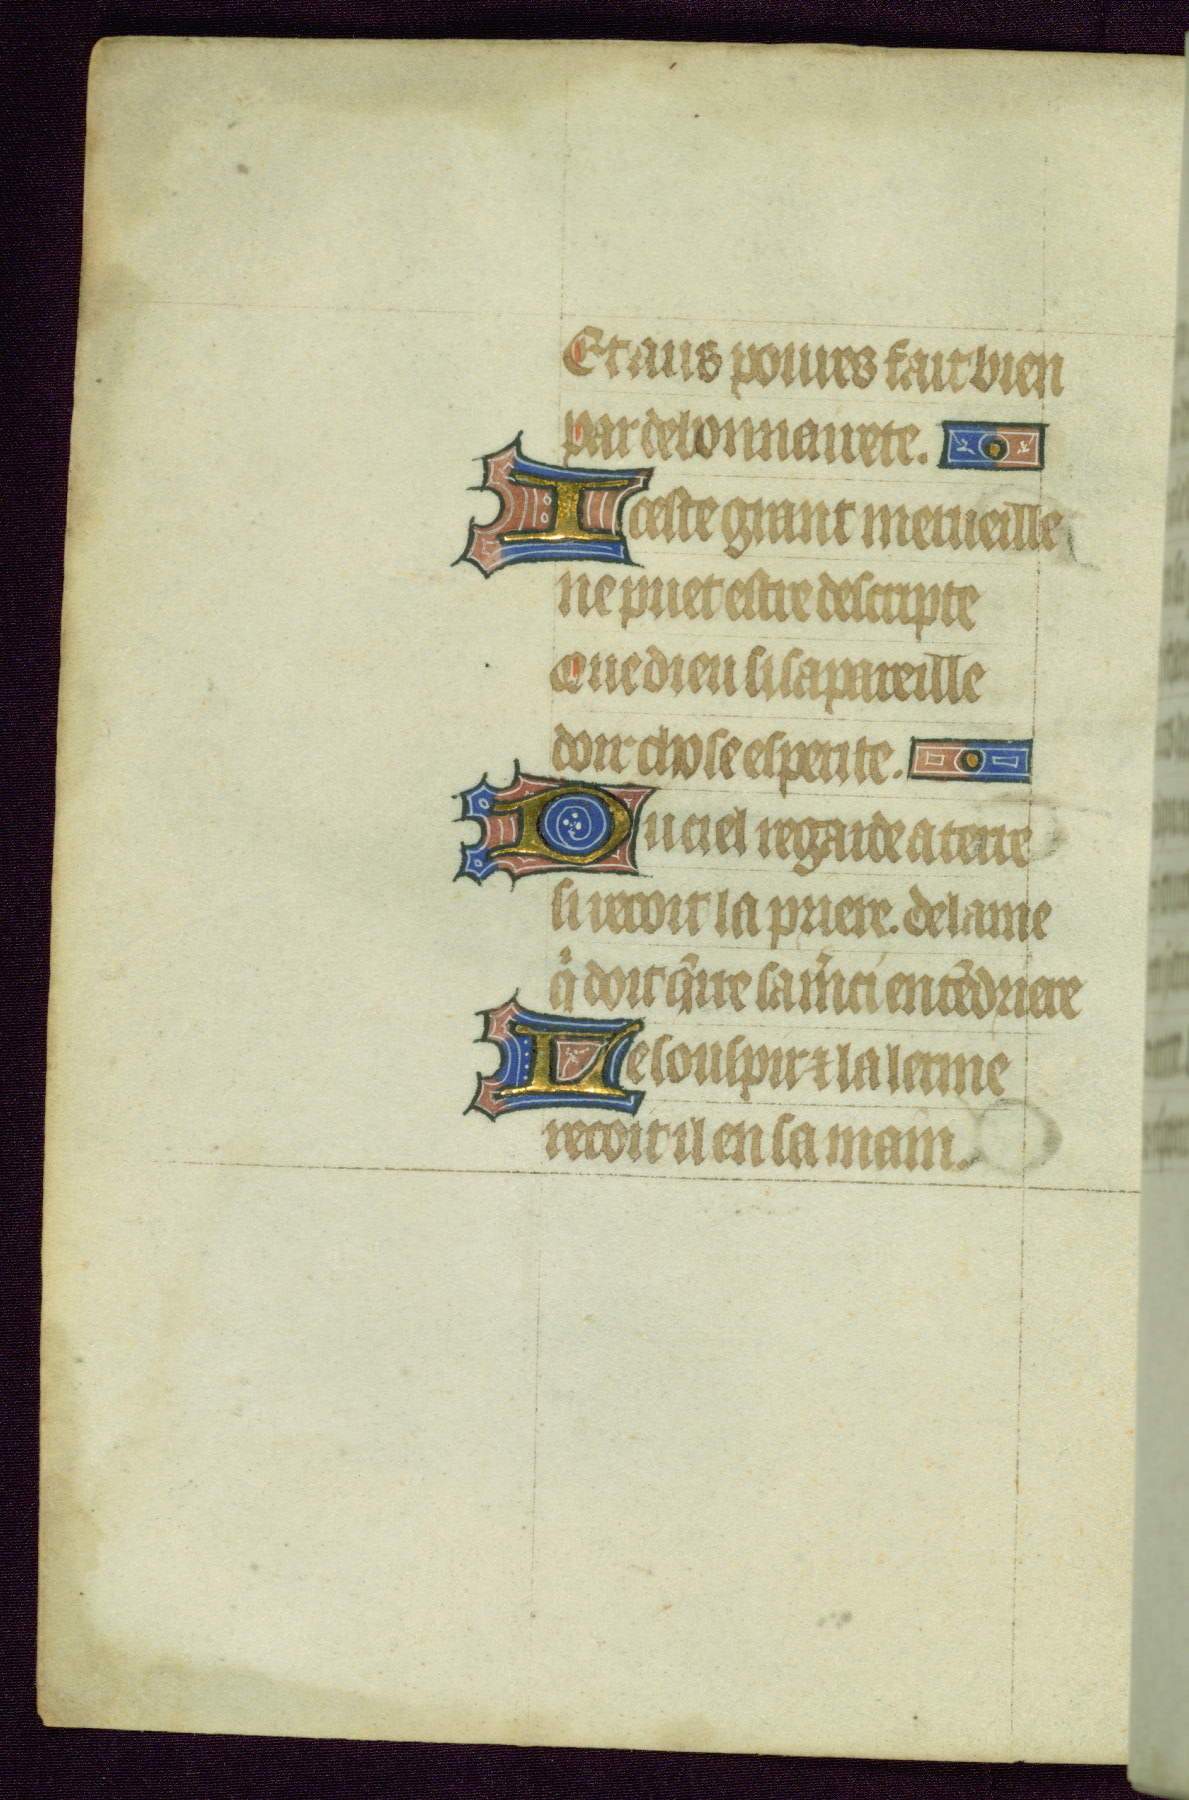 Et aus poures fait bien
par debonnairete.
Iceste grant merueille
ne puet estre descripte
Que dieu si sapareille
doit chose espetite.
Du ciel regarde a terre
si recoit la priere. de lame
q̇ doit q̄rre sa m̄ci entēdriere
Le souspir ⁊ la lerme
recoit il en sa main.